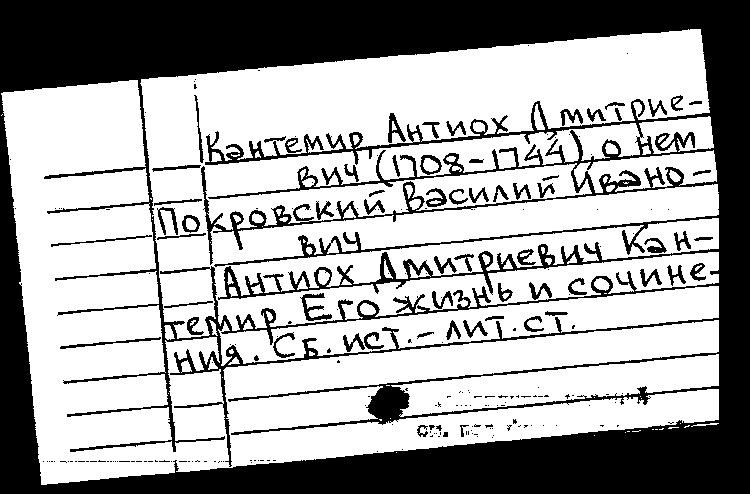 Кантемир, Антиох Дмитрие-
вич (1708-1744), о нем
Покровский, Василий Ивано-
вич
Антиох Дмитриевич Кан-
темир. Его жизнь и сочине-
ния. Сб. ист.-лит. ст.
см.